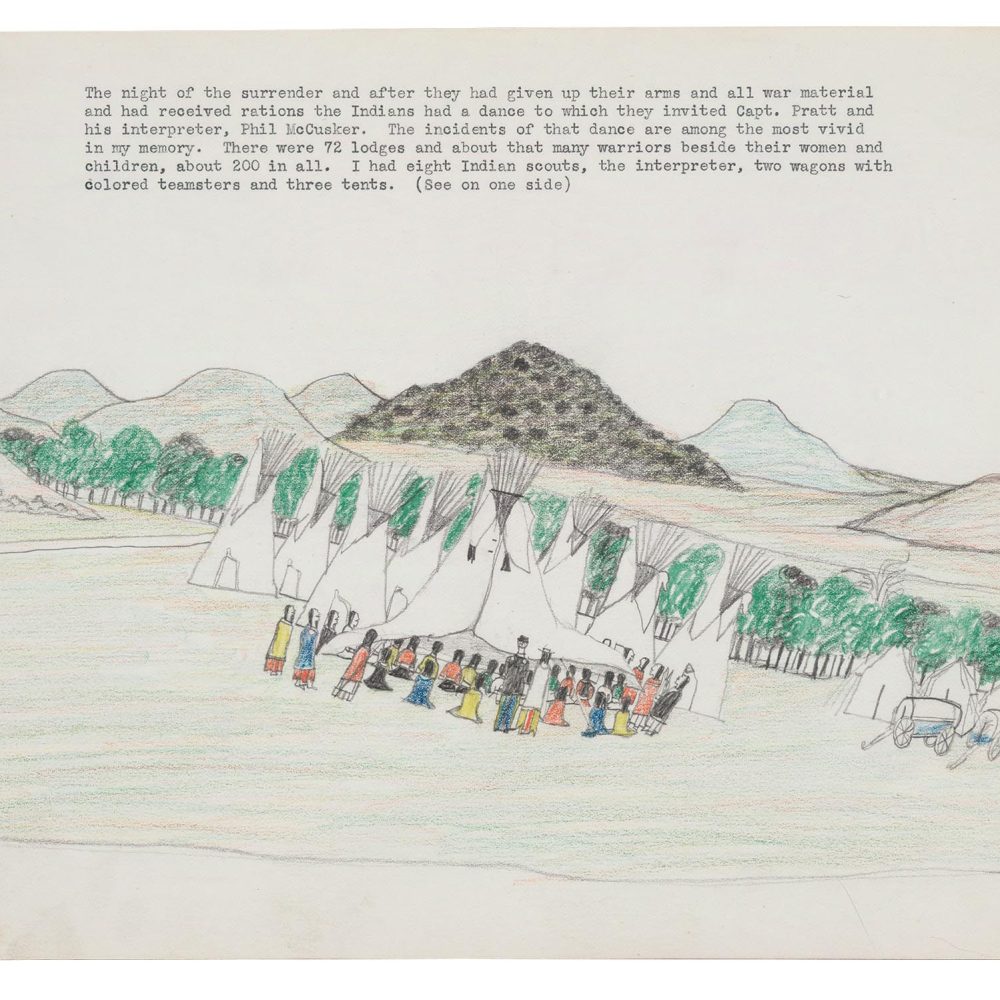 The night of the surrender and after they had given up their arms and all war material
and had received rations the Indians had a dance to which they invited Capt. Pratt and
his interpreter, Phil McCusker.  The incidents of that dance are among the most vivid
in my memory.  There were 72 lodges and about that many warriors beside their women and
children, about 200 in all.  I had eight Indian scouts, the interpreter, two wagons with
colored teamsters and three tents.  (See on one side)